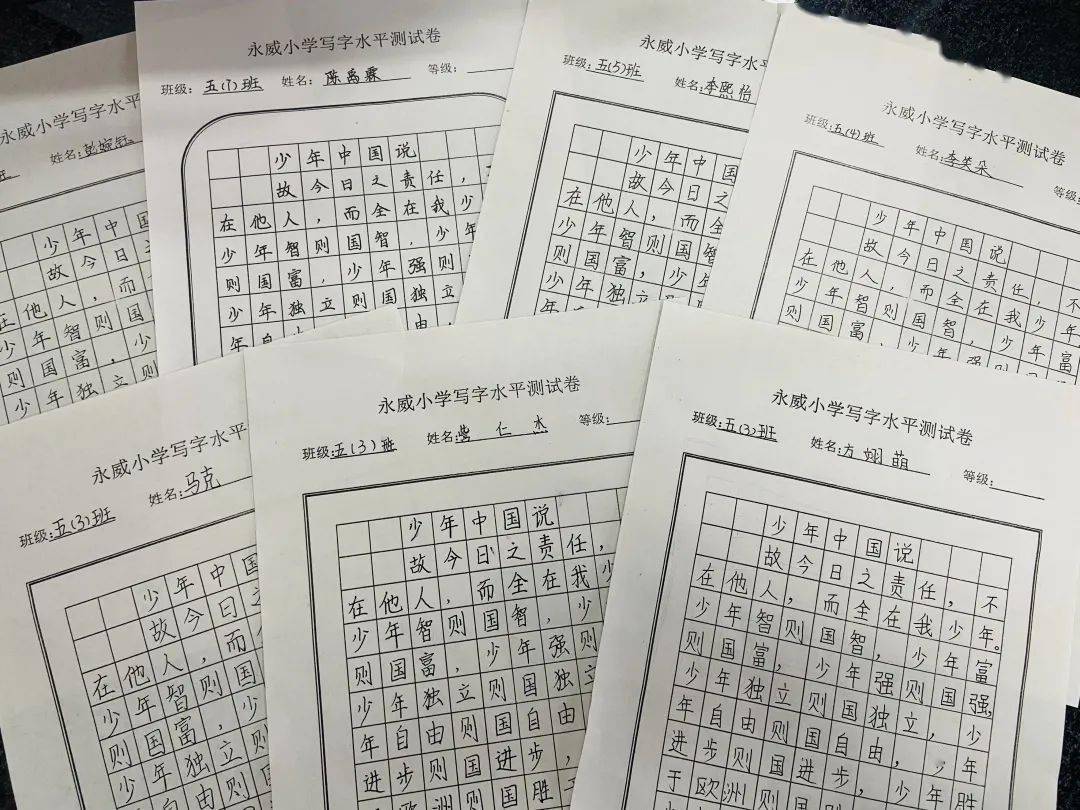 永威小学写字水平
姓名:
班
少年中国
故今日之
在他人，而
少年智则国
则国富，少
少年独立则
永威小学写字水平测试卷
班级: 五(7)班 姓名: 陈禹霖 等级:
少年中国说
故今日之责任，
在他人，而全在我少
少年智则国智，少年
则国富，少年强则
少年独立则国独立
年自
由，
永威小学写字水平
班级: 五(5)班 姓名: 李熙怡
少年中国
故今日之
在他人，而全
少年智则国
则国富，少年
少年独立则
永威小学写字水平测试卷
班级: 五(4)班 姓名: 李笑朵 等级:
少年中国说
故今日之责任，不
在他人，而全在我少年
少年智则国智，少年富
则国富，少年强则
永威小学写字水平
班级: 五(3)班 姓名: 马克
少年中国
故今日之
在他人，而
少年智则国
则国富，少
少年独立则
年自由则国
永威小学写字水平测试卷
班级: 五(3)班 姓名: 仁杰 等级:
少年中国说
故今日之责任，
在他人，而全在我少
少年智则国智，少
则国富，少年强则
少年独立则国独立
年自由则国自由
进步则国进步，
欧洲则国胜于
永威小学写字水平测试卷
班级: 五(3)班 姓名: 方翊萌 等级:
少年中国说
故今日之责任，不
在他人，而全在我少年。
少年智则国智，少年富
则国富，少年强则国强，
少年独立则国独立，少
年自由则国自由，少年
进步则国进步，少年胜
于欧洲则国